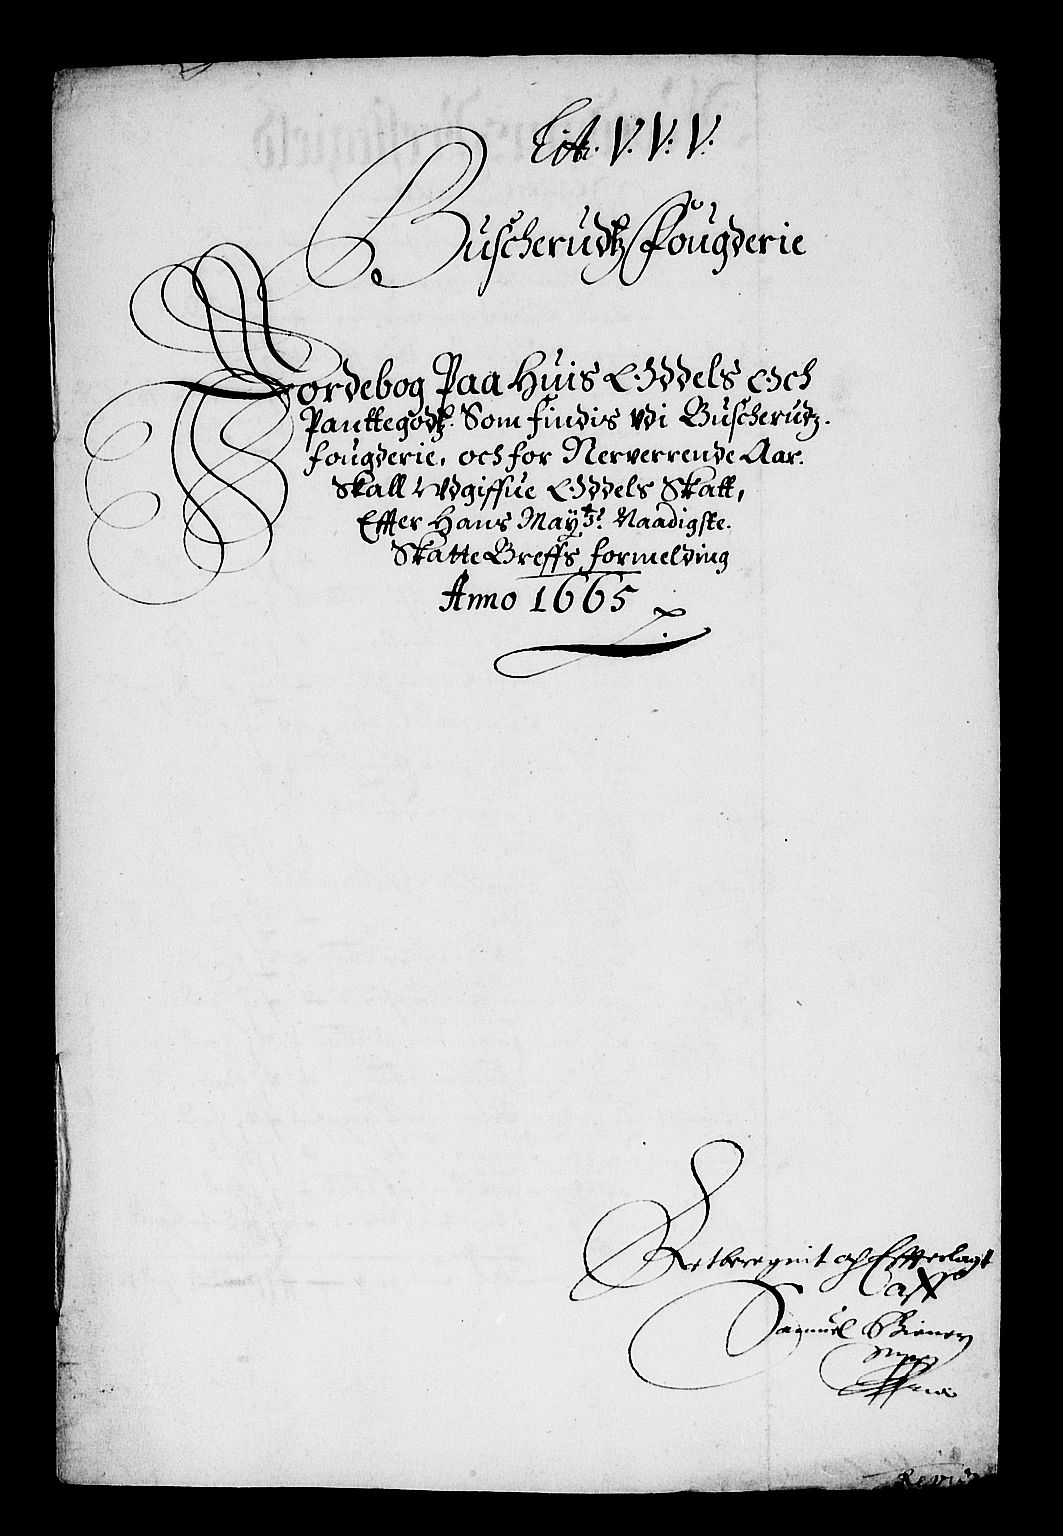 Litr. V. V. V.
Buscherudtz fougderie
Jordebog Paa Huis Oddels och
Panttegodtz. Som findis vdi Buscherudtz.
fougderie, och for Nerverrende Aar.
Skall vdgiffue Oddels Skatt,
Effter Hans May:tz: Naadigste.
Skatte Breffs formelding
Anno 1665
Retberegnit och Effterlagt
Samuel